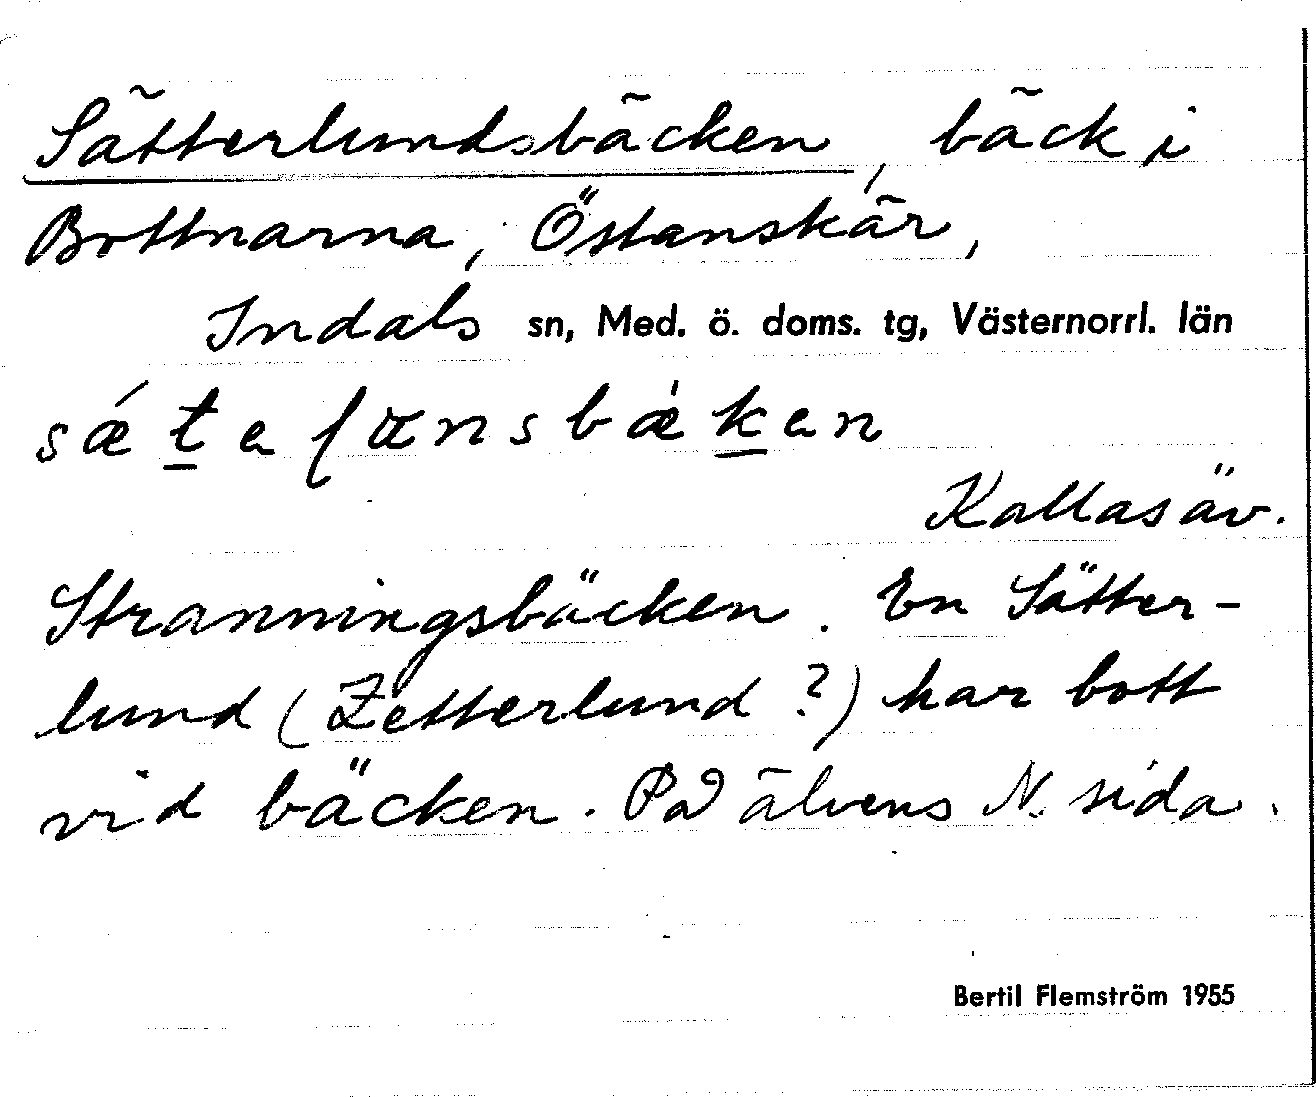 Sätterlundsbäcken, bäck i
Bottnarna, Östanskär,
Indals sn, Med. ö. doms. tg, Västernorrl. län
sǽt̲eſɑnsbækﾠ̲en
Kallas äv.
Stranningsbäcken. En Sätter-
lund (Zetterlund?) har bott
vid bäcken. På älvens N. sida.
Bertil Flemström 1955